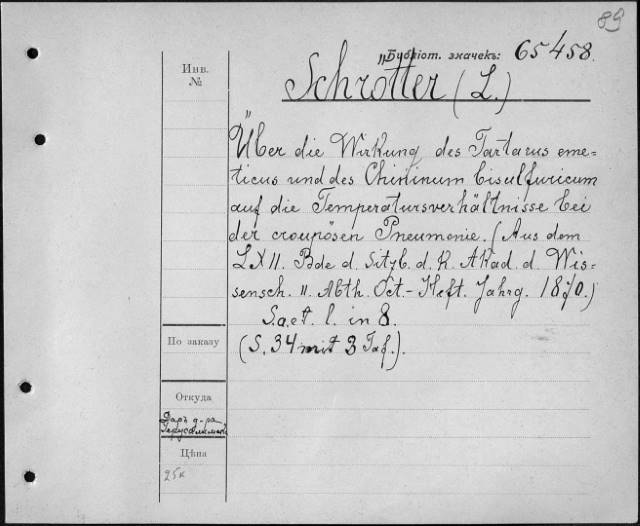 89
Библіот. значекъ: 65458.
Инв.
№
Schrötter (L.)
Über die Wirkung des Tartarus eme=
ticus und des Chininum bisulfuricum
auf die Temperatursverhältnisse bei
der croupösen Pneumonie. (Aus dem
LXII. Bde d. Sitzb. d. K. Akad. d. Wis=
sensch. II. Abth. Oct.-Heft. Jahrg. 1870.)
S.a.et l. in 8.
(S. 34 mit 3 Taf.).
По заказу
Откуда
Даръ д-ра
Цѣна
25к